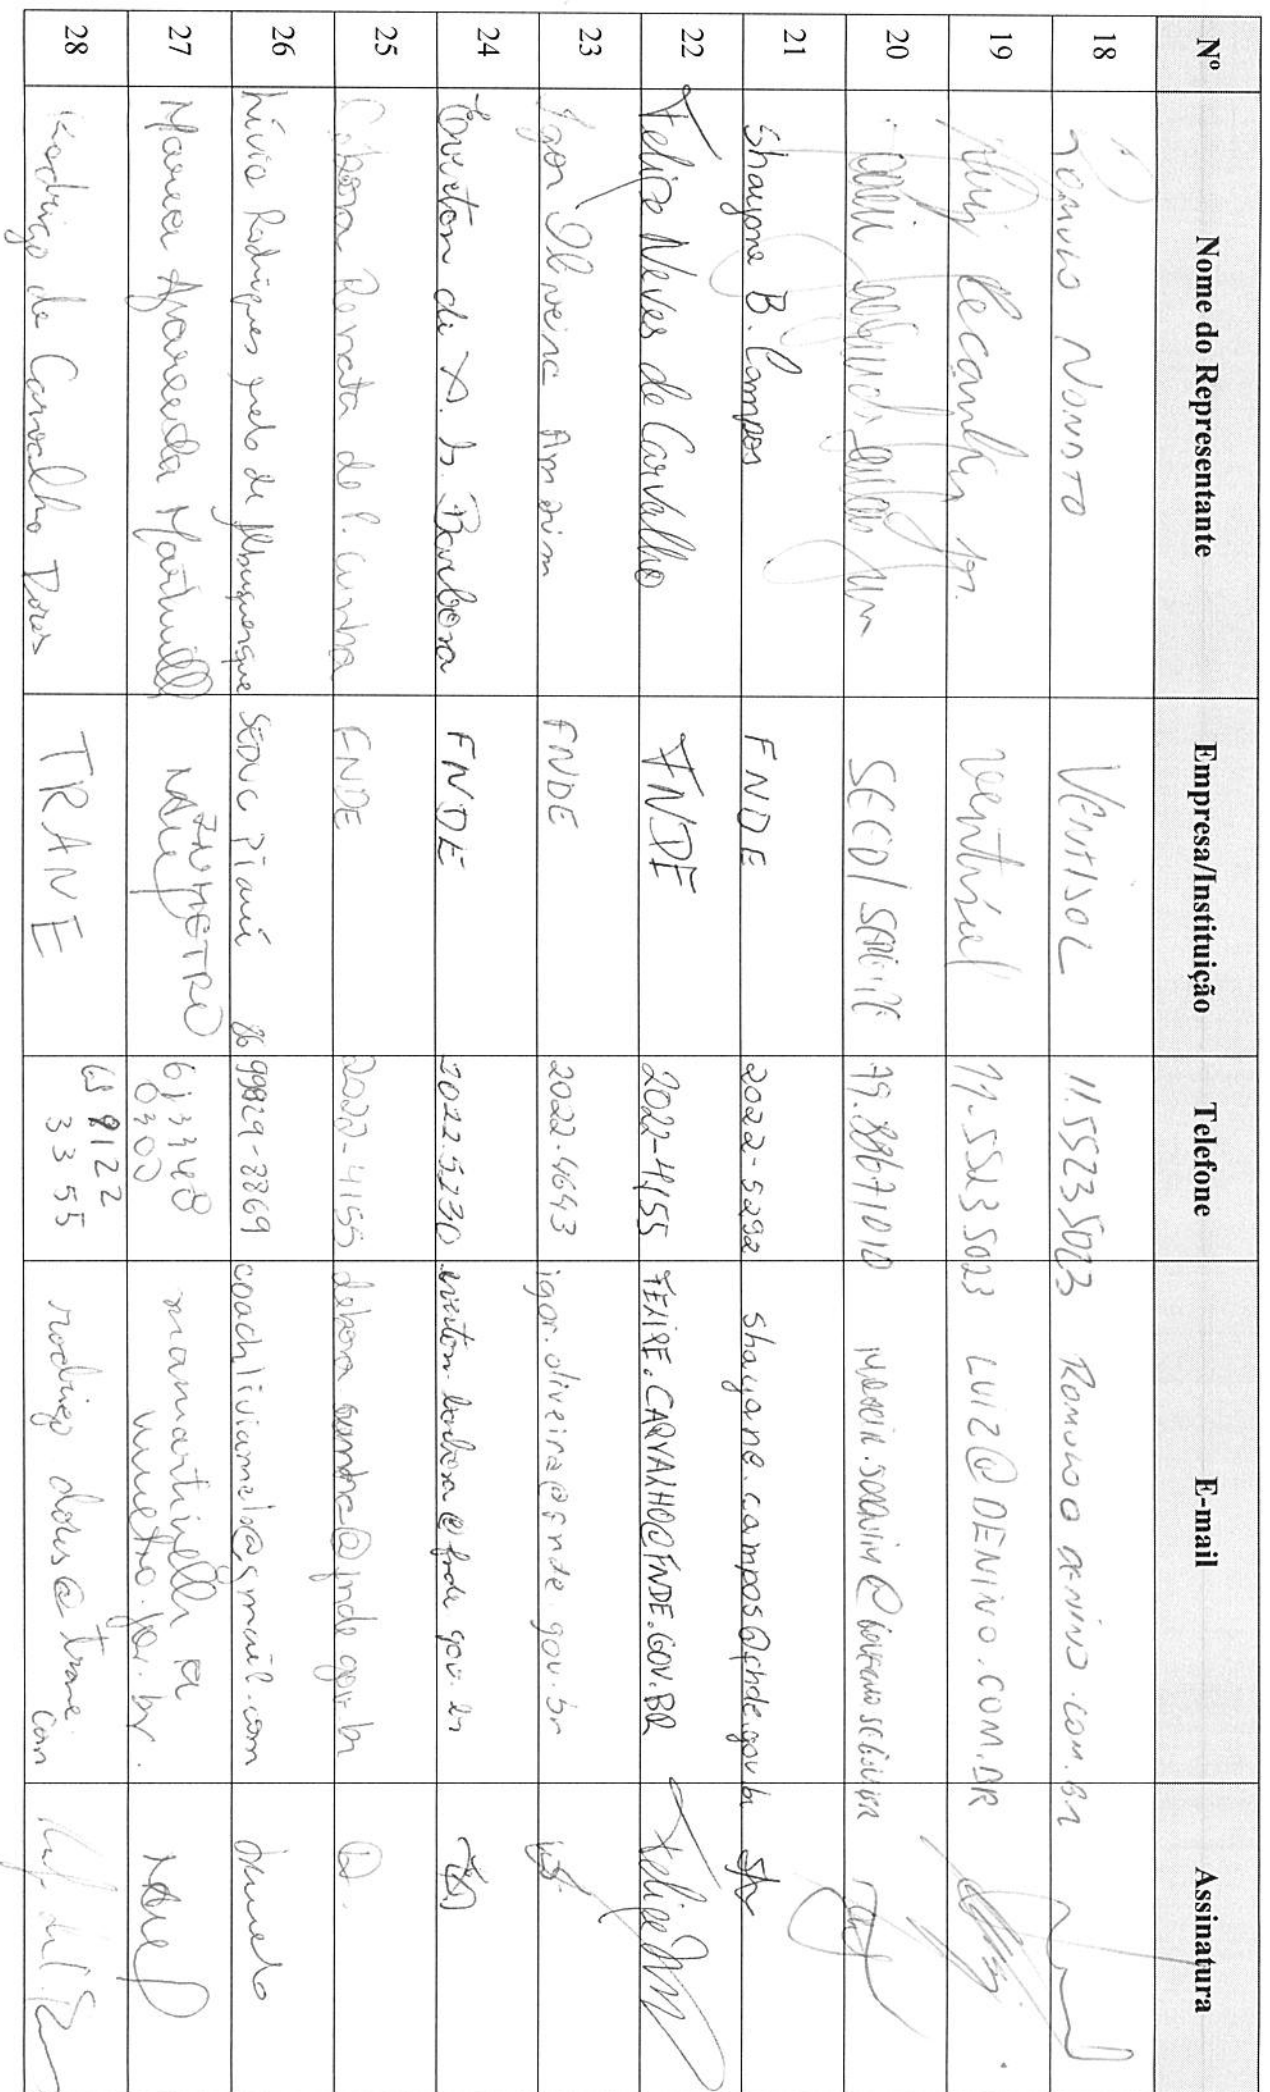 Nº Nome do Representante Empresa/Instituição Telefone E-mail Assinatura
18 Romulo Nonato VENTISOL 11.5523 5023 Romulo@denino.com.br
19 Luiz Jr. Ventisol 11-5523 5023 LUIZ@DENINO.COM.BR
20 SEED/SERGIPE 79.88671010
21 Shayane B. Campos FNDE 2022-5292 shayane.campos@fnde.gov.br
22 Felipe Neves de Carvalho FNDE 2022-4155 FELIPE.CARVALHO@FNDE.GOV.BR Felipe
23 Igor Oliveira Amorim FNDE 2022-4643 igor.oliveira@fnde.gov.br
24 Everton de X. S. Barbosa FNDE 2022.5230 everton.barbosa@fnde.gov.br
25 Debora Renata de P. Cunha FNDE 2022-4155 debora.cunha@fnde.gov.br D.
26 Lívia Rodrigues melo de Albuquerque SEDUC Piauí 86 99829-8869 coachliviamelo@gmail.com
27 INMETRO 61 3348 6300
28 Rodrigo de Carvalho Dores TRANE 61 8122 3355 rodrigo.dores@trane.com